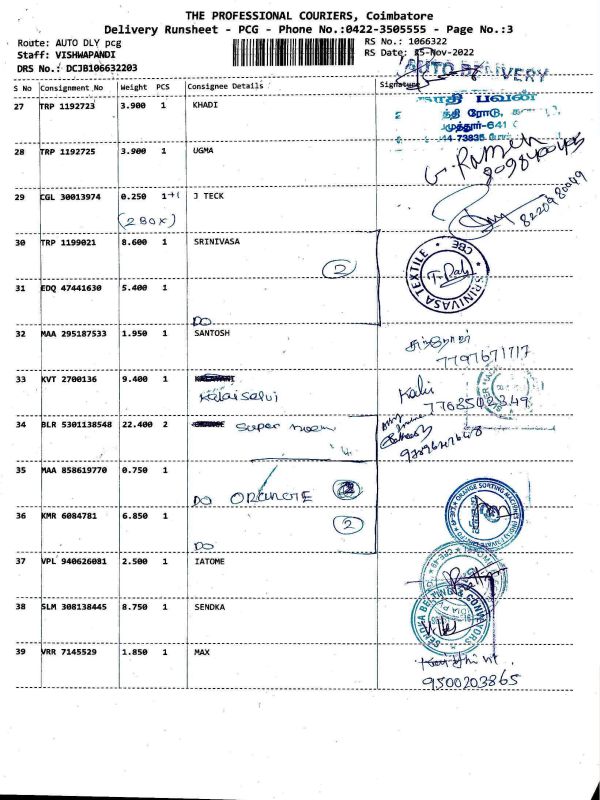 THE PROFESSIONAL COURIERS, Coimbatore
Delivery Runsheet - PCG - Phone No.:0422-3505555 - Page No.:3
Route: AUTO DLY pcg
RS No.: 1066322
Staff: VISHWAPANDI
RS Date: 15-Nov-2022
DRS No.: DCJB106632203
AUTO DELIVERY
S No Consignment_No Weight PCS Consignee Details Signature
27 TRP 1192723 3.900 1 KHADI
28 TRP 1192725 3.900 1 UGMA
29 CGL 30013974 0.250 1+1 J TECK
8220980049
(2 BOX)
30 TRP 1199021 8.600 1 SRINIVASA
2
SRINIVASA TEXTILE * CBE *
31 EDQ 47441630 5.400 1
DO
32 MAA 295187533 1.950 1 SANTOSH
7797671717
33 KVT 2700136 9.400 1
Kalaiselvi
34 BLR 5301138548 22.400 2 Super
35 MAA 858619770 0.750 1
DO
ORANGE SORTING MACHINES
36 KMR 6084781 6.850 1
2
DO
37 VPL 940626081 2.500 1 IATOME
38 SLM 308138445 8.750 1 SENDKA
SENDKA BELTING & CONVEYORS
39 VRR 7145529 1.850 1 MAX
9500203865